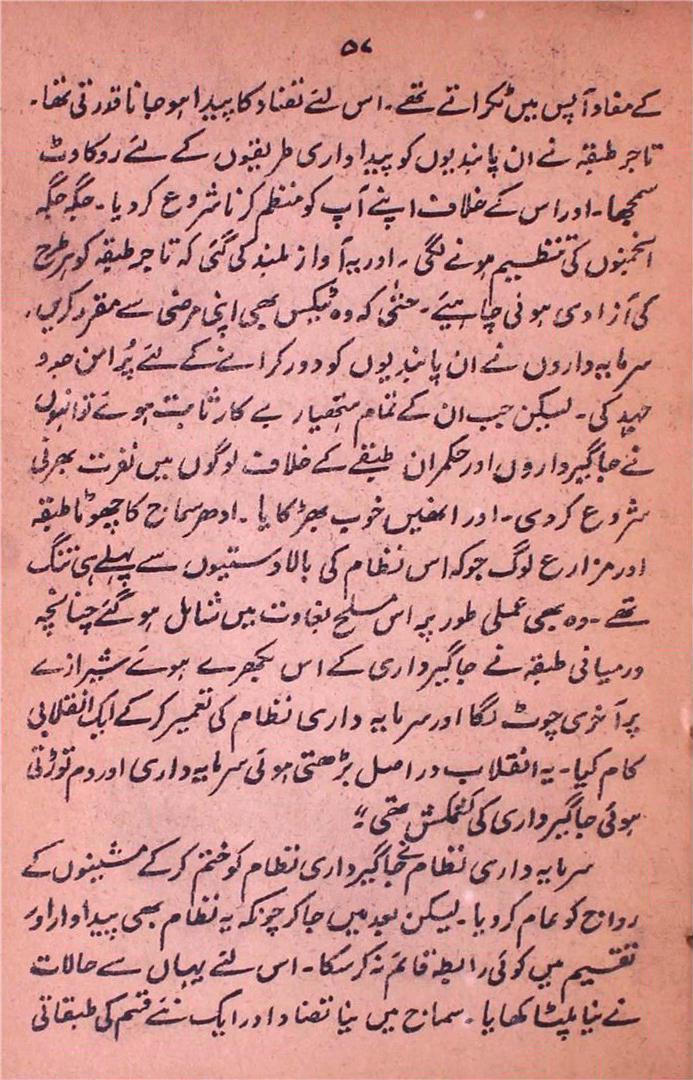 ۵۷
کے مفاد آپس میں ٹکراتے تھے۔ اس لئے تضاد کا پیدا ہو جانا قدرتی تھا۔
تاجر طبقہ نے ان پابندیوں کو پیداواری طریقوں کے لئے روکاوٹ
سمجھا۔ اور اس کے خلاف اپنے آپ کو منظم کرنا شروع کر دیا۔ جگہ جگہ
انجمنوں کی تنظیم ہونے لگی۔ اور یہ آواز بلند کی گئی کہ تاجر طبقہ کو ہر طرح
کی آزادی ہونی چاہیئے۔ حتیٰ کہ وہ ٹیکس بھی اپنی مرضی سے مقرر کریں۔
سرمایہ داروں نے ان پابندیوں کو دور کرانے کے لئے پُر امن جدو
جہد کی۔ لیکن جب ان کے تمام ہتھیار بے کار ثابت ہوئے تو انہوں
نے جاگیرداروں اور حکمران طبقے کے خلاف لوگوں میں نفرت بھرنی
شروع کر دی۔ اور انھیں خوب بھڑکایا۔ ادھر سماج کا چھوٹا طبقہ
اور مزارع لوگ جو کہ اس نظام کی بالادستیوں سے پہلے ہی تنگ
تھے۔ وہ بھی عملی طور پر اس مسلح بغاوت میں شامل ہو گئے چنانچہ
درمیانی طبقہ نے جاگیرداری کے اس بکھرے ہوئے شیرازے
پر آخری چوٹ لگا اور سرمایہ داری نظام کی تعمیر کر کے ایک انقلابی
کام کیا۔ یہ انقلاب دراصل بڑھتی ہوئی سرمایہ داری اور دم توڑتی
ہوئی جاگیرداری کی کشمکش تھی"۔
سرمایہ داری نظام نے جاگیرداری نظام کو ختم کر کے مشینوں کے
رواج کو عام کر دیا۔ لیکن بعد میں جا کر چونکہ یہ نظام بھی پیداوار اور
تقسیم میں کوئی رابطہ قائم نہ کر سکا۔ اس لئے یہاں سے حالات
نے نیا پلٹا کھایا۔ سماج میں نیا تضاد اور ایک نئے قسم کی طبقاتی